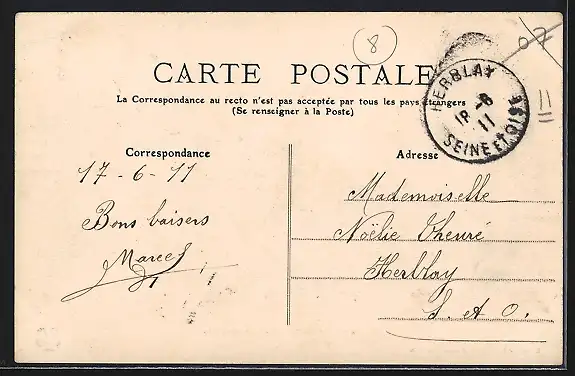 8
07
CARTE POSTALE
La Correspondance au recto n'est pas acceptée par tous les pays étrangers
(Se renseigner à la Poste)
HERBLAY
18 - 6
11
SEINE ET OISE
11
Correspondance
17 - 6 - 11
Bons baisers
Marcel
Adresse
Mademoiselle
Noëlie Theuré
Herblay
S. et O.